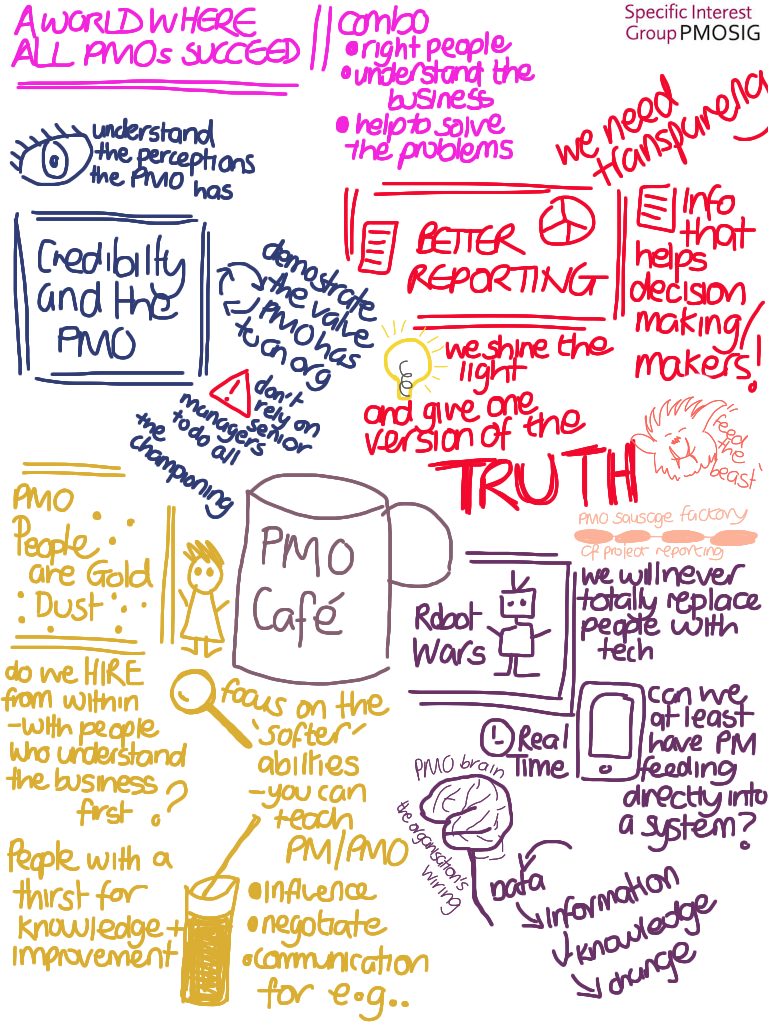 A WORLD WHERE
ALL PMOs SUCCEED
combo
• right people
• understand the
business
• help to solve
the problems
Specific Interest
Group PMOSIG
understand
the perceptions
the PMO has
we need
transparency
Credibilty
and the
PMO
demostrate
the value
PMO has
to an org
! don't
rely on
senior
managers
to do all
the
championing
BETTER
REPORTING
Info
that
helps
decision
making/
makers!
we shine the
light
and give one
version of the
TRUTH
'feed
the
beast'
PMO sausage factory
of project reporting
PMO
People
are Gold
Dust
PMO
Café
Robot
Wars
we will never
totally replace
people with
tech
do we HIRE
from within
-with people
who understand
the business
first?
focus on the
'softer'
abilities
-you can
teach
PM/PMO
• influence
• negotiate
• communication
for e.g..
People with a
thirst for
knowledge +
improvement
Real
Time
can we
at least
have PM
feeding
directly into
a system?
PMO brain
the organisation's
wiring
DATA
information
knowledge
change